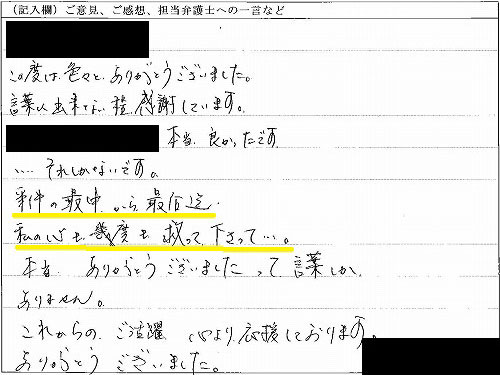 (記入欄)ご意見、ご感想、担当弁護士への一言など
この度は、色々と、ありがとうございました。
言葉に出来ない程、感謝しています。
本当、良かったです
.... それしかないです。
事件の最中から、最后迄、
私の心を、幾度も救って、下さって…。
本当、ありがとうございましたって言葉しか、
ありません。
これからの、ご活躍、心より、応援しております。
ありがとうございました。